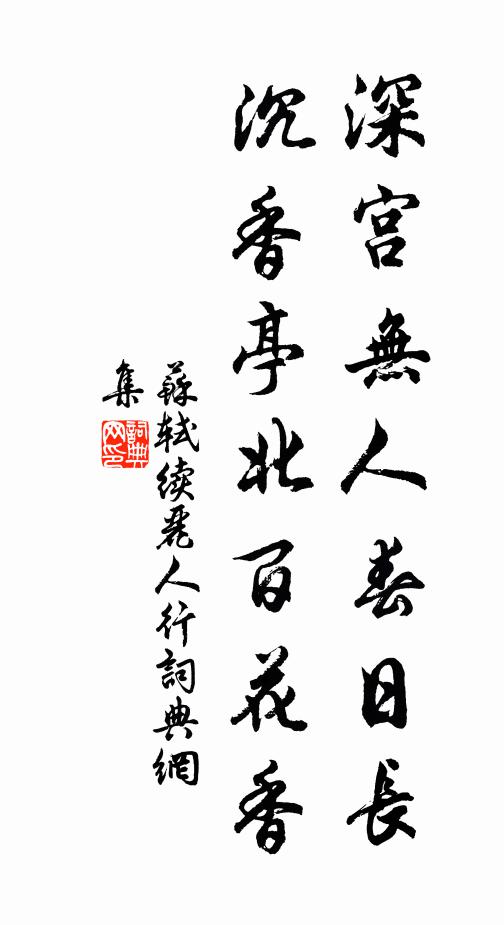 深宮無人春日長
沉香亭北百花香
蘇軾續麗人行詞典網
集
詞典網印